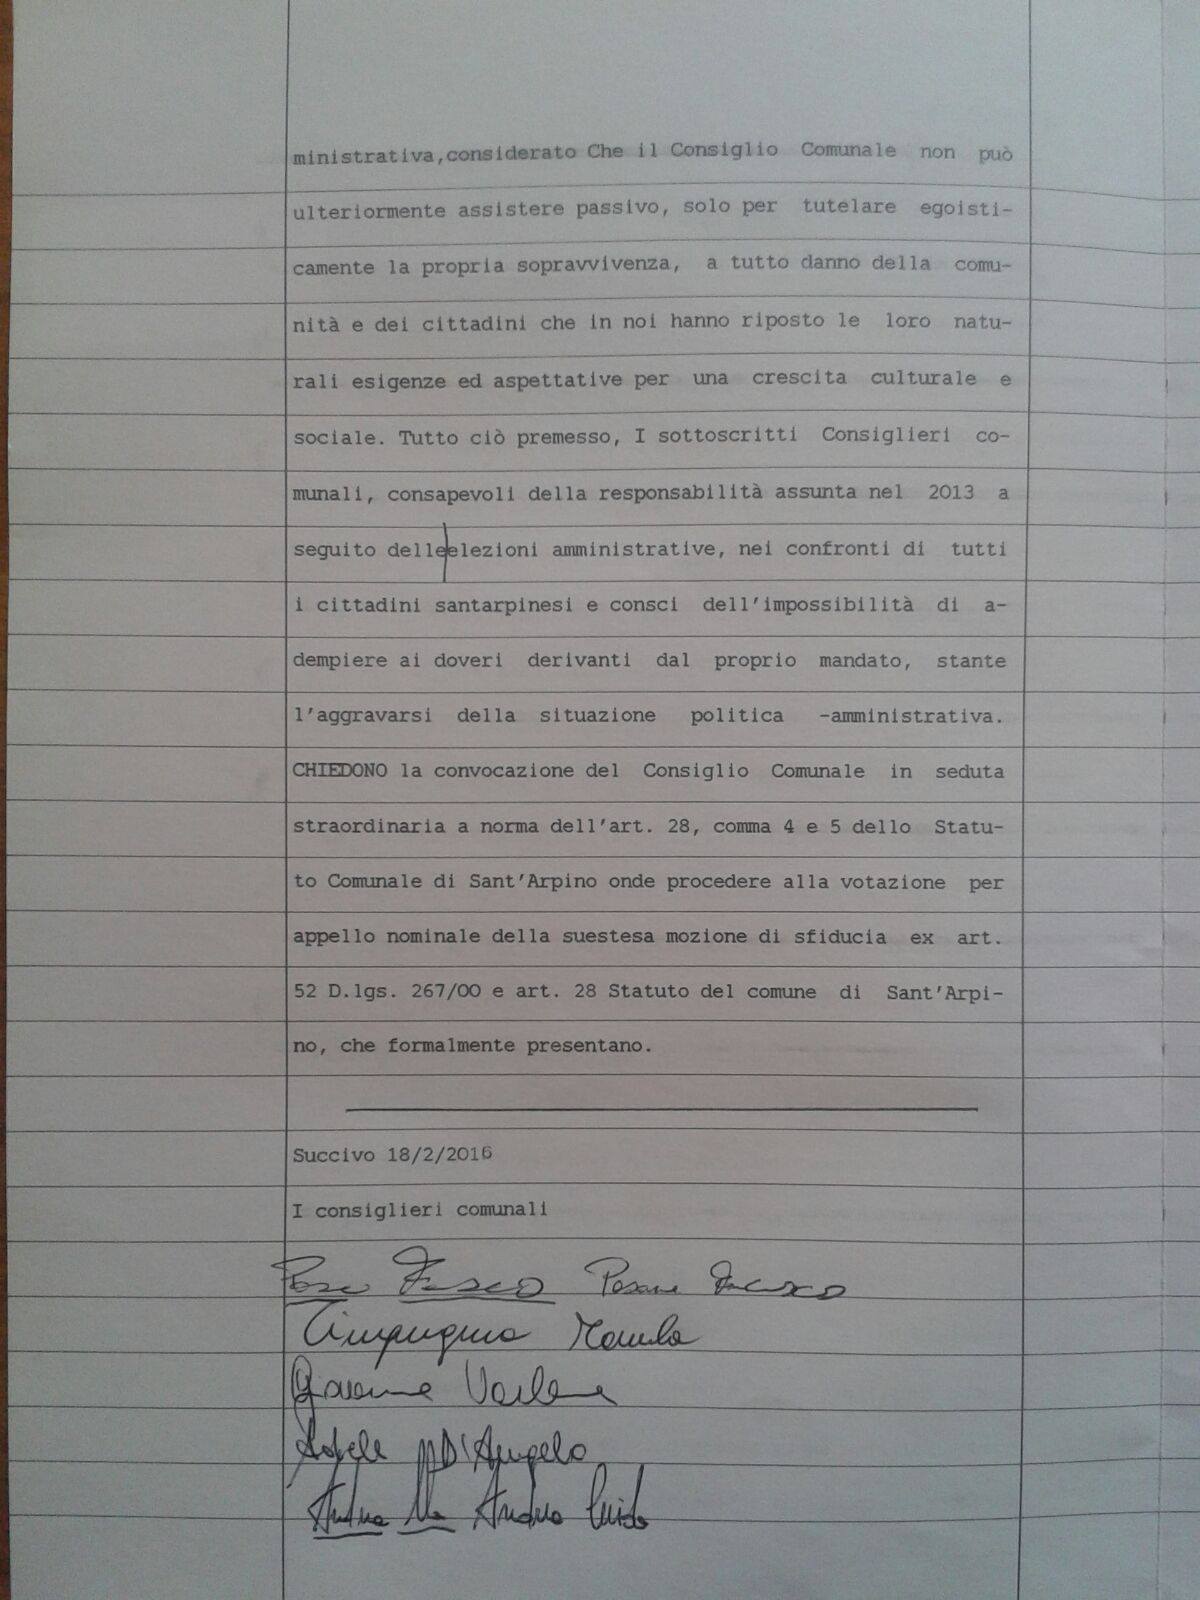 ministrativa,considerato Che il Consiglio Comunale non può
ulteriormente assistere passivo, solo per tutelare egoisti-
camente la propria sopravvivenza, a tutto danno della comu-
nità e dei cittadini che in noi hanno riposto le loro natu-
rali esigenze ed aspettative per una crescita culturale e
sociale. Tutto ciò premesso, I sottoscritti Consiglieri co-
munali, consapevoli della responsabilità assunta nel 2013 a
seguito delle|elezioni amministrative, nei confronti di tutti
i cittadini santarpinesi e consci dell'impossibilità di a-
dempiere ai doveri derivanti dal proprio mandato, stante
l'aggravarsi della situazione politica -amministrativa.
CHIEDONO la convocazione del Consiglio Comunale in seduta
straordinaria a norma dell'art. 28, comma 4 e 5 dello Statu-
to Comunale di Sant'Arpino onde procedere alla votazione per
appello nominale della suestesa mozione di sfiducia ex art.
52 D.lgs. 267/OO e art. 28 Statuto del comune di Sant'Arpi-
no, che formalmente presentano.
Succivo 18/2/2016
I consiglieri comunali
Adele D'Angelo
Andrea Guida